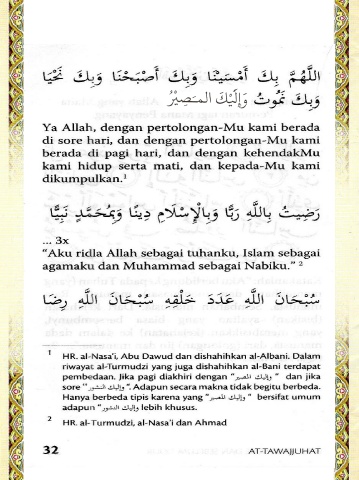 اَللَّهُمَّ بِكَ أَمْسَيْنَا وَبِكَ أَصْبَحْنَا وَبِكَ نَحْيَا
وَبِكَ نَمُوتُ وَإِلَيْكَ الْمَصِيْرُ
Ya Allah, dengan pertolongan-Mu kami berada
di sore hari, dan dengan pertolongan-Mu kami
berada di pagi hari, dan dengan kehendakMu
kami hidup serta mati, dan kepada-Mu kami
dikumpulkan.¹
رَضِيتُ بِاللَّهِ رَبًّا وَبِالْإِسْلَامِ دِينًا وَبِمُحَمَّدٍ نَبِيًّا
... 3x
“Aku ridla Allah sebagai tuhanku, Islam sebagai
agamaku dan Muhammad sebagai Nabiku.” ²
سُبْحَانَ اللَّهِ عَدَدَ خَلْقِهِ سُبْحَانَ اللَّهِ رِضَا
1 HR. al-Nasa'i, Abu Dawud dan dishahihkan al-Albani. Dalam
riwayat al-Turmudzi yang juga dishahihkan al-Bani terdapat
pembedaan. Jika pagi diakhiri dengan “وإليك المصير “ dan jika
sore “وإليك النشور”. Adapun secara makna tidak begitu berbeda.
Hanya berbeda tipis karena yang “وإليك المصير” bersifat umum
adapun “وإليك النشور” lebih khusus.
2 HR. al-Turmudzi, al-Nasa'i dan Ahmad
32 AT-TAWAJJUHAT